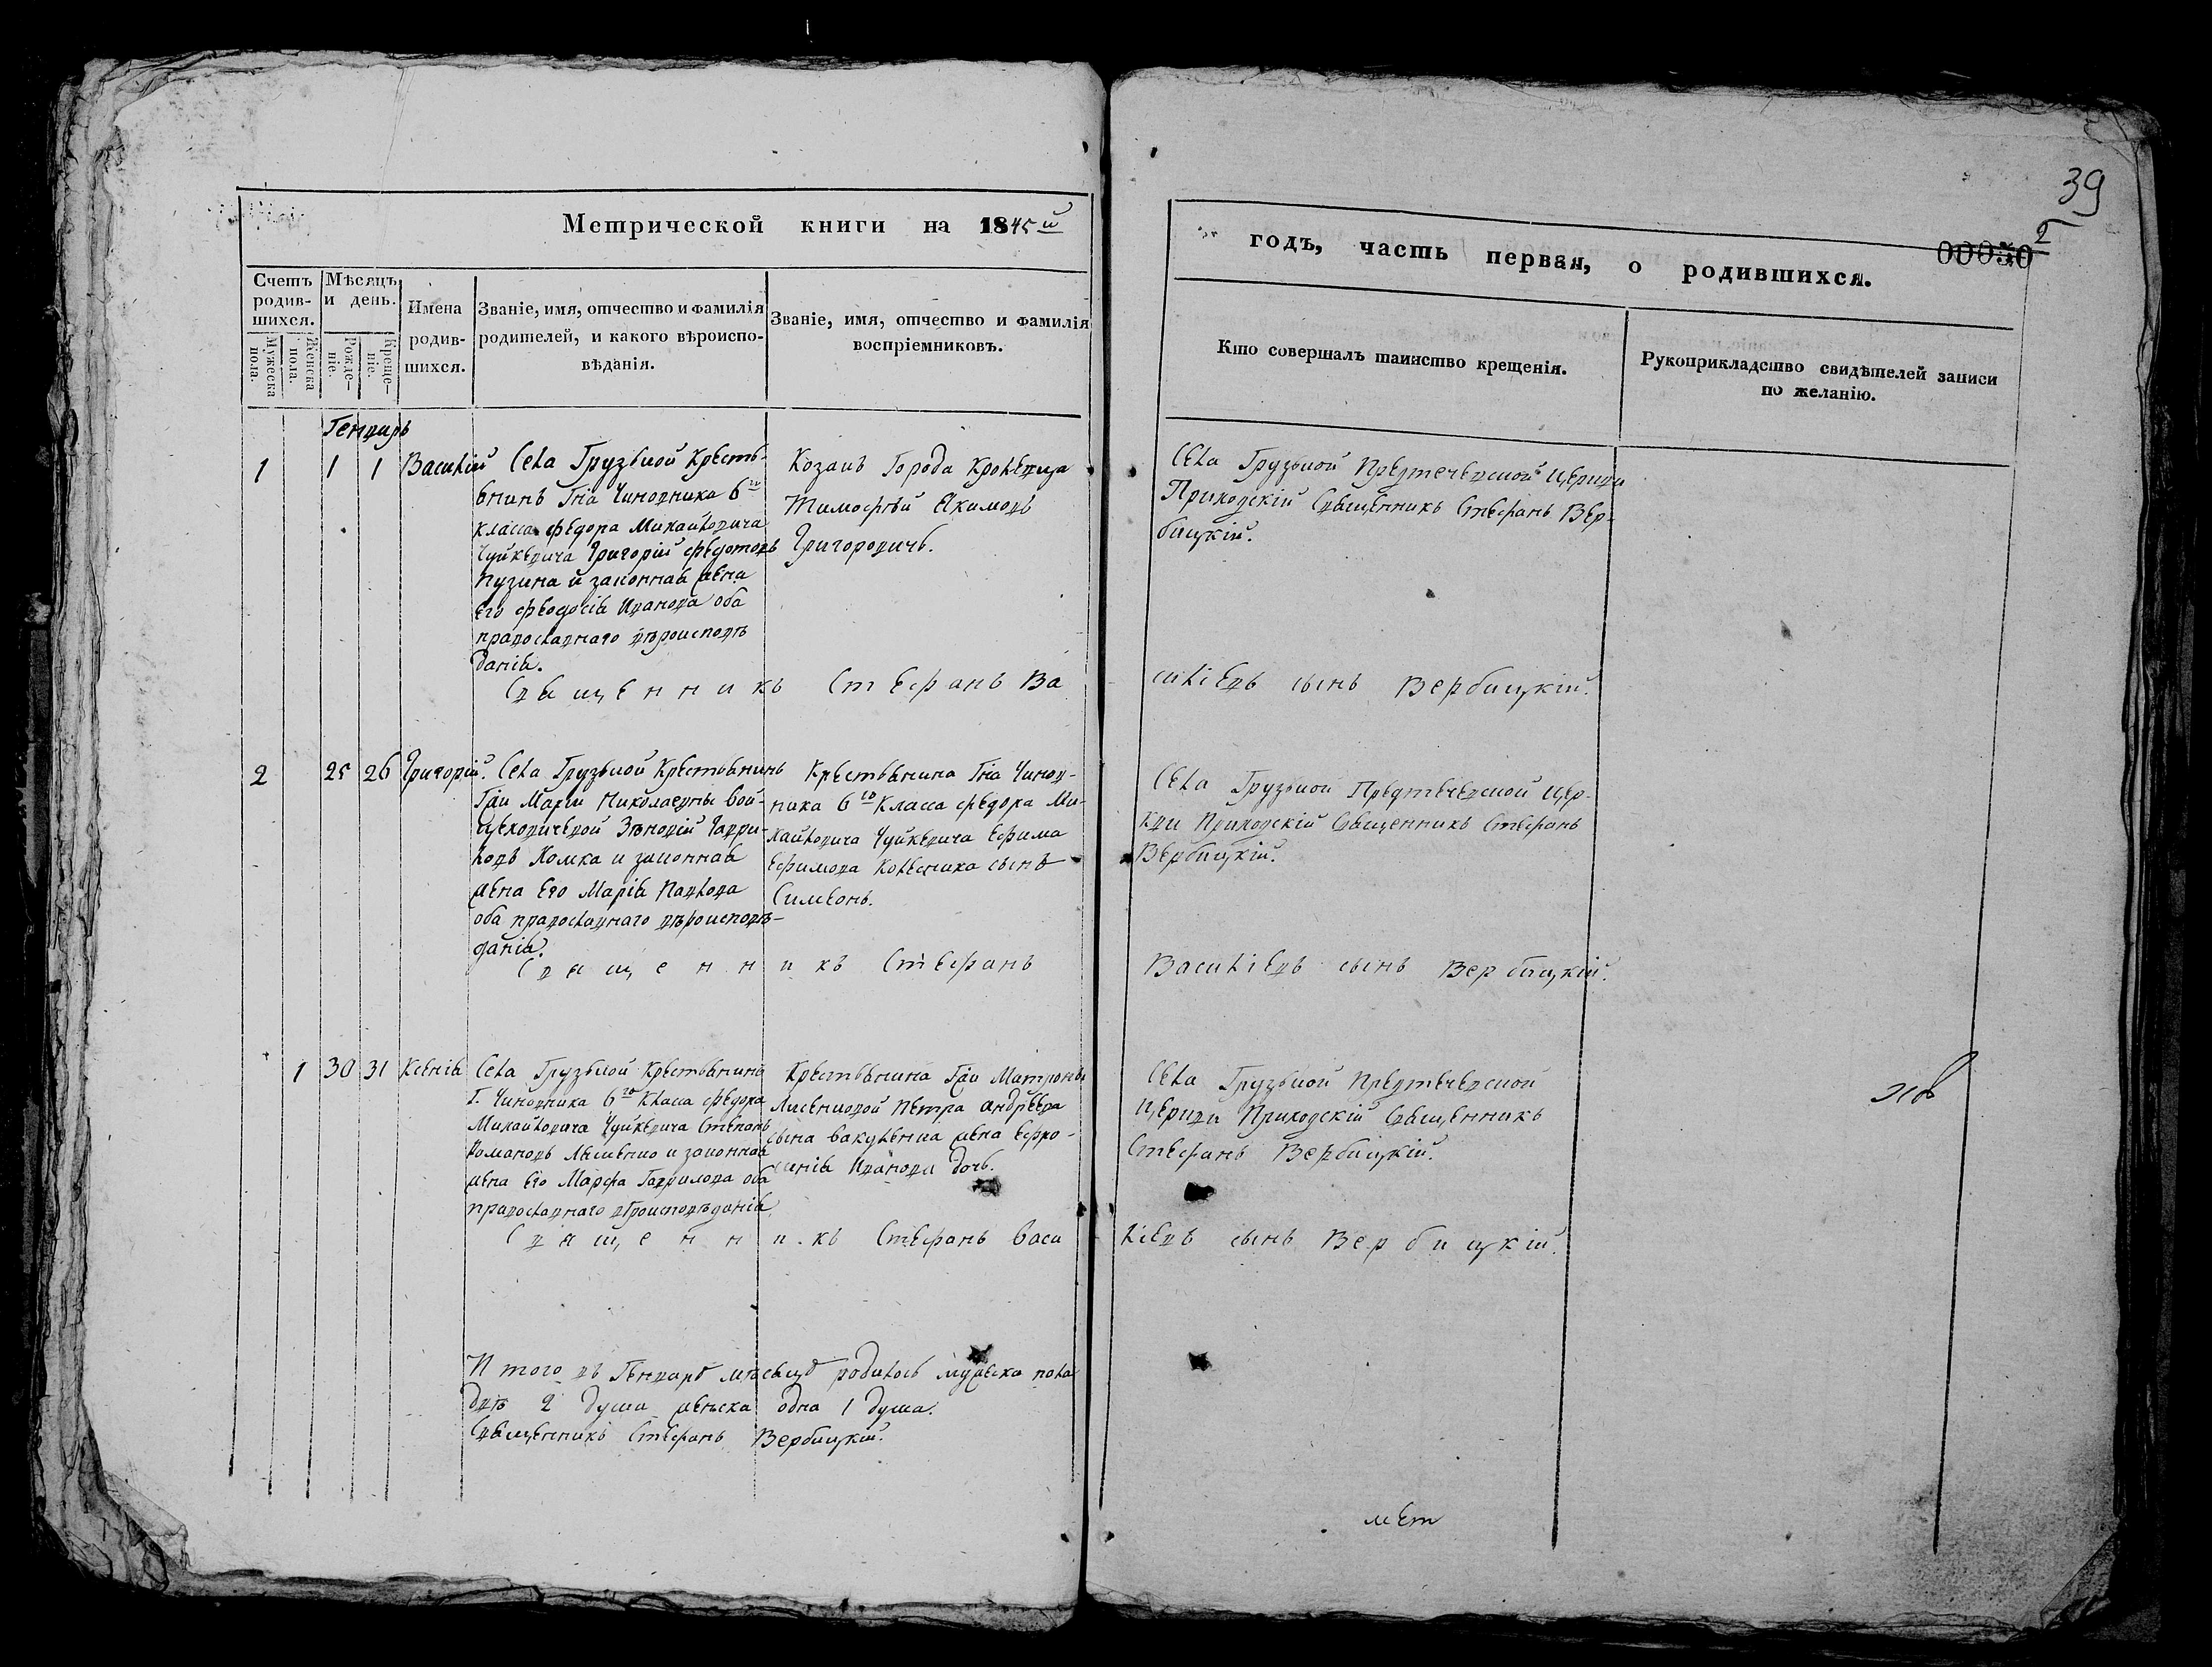 Метрической книги на 1845й
Счетъ родив-шихся.
Мужеска пола.
Женска пола.
Мѣсяцъ и день.
Рожде-ніе.
Креще-ніе.
Имена родив-шихся.
Званіе, имя, отчество и фамилія
родителей, и какого вѣроиспо-
вѣданія.
Званіе, имя, отчество и фамилія
воспріемниковъ.
Генварь
1 1 1 Василій
Села Грузьной Кресть-
янинъ Гна Чиновника 6го
класса Федора Михайловича
Чуйкевича Григорій Федотовъ
Пузина и законная жена
Его Феодосія Иванова оба
православнаго вѣроисповѣ
данія.
Козакъ Города Кролевца
Тимофѣй Якимовъ
Григоровичь.
Священникъ Стефанъ Ва
2 25 26 Григорій.
Села Грузьной Крестьянинъ
Гжи Маріи Николаевны Вой-
цеховичевой Зѣновій Гаври-
ловъ Хомка и законная
жена Его Марія Павлова
оба православнаго вѣроисповѣ-
данія.
Крестьянина Гна Чинов-
ника 6го Класса Федора Ми-
хайловича Чуйкевича Ефима
Ефимова Колесника сынъ
Симеонъ.
Священникъ Стефанъ
1 30 31 Ксенія
Села Грузьной Крестьянина
Г. Чиновника 6го Класа Федора
Михайловича Чуйкевича Степанъ
Романовъ и законная
жена Его Марфа Гаврилова оба
православнаго вѣроисповѣданія
Крестьянина Гжи Матроны
Лисенковой Петра Андреева
сына Вакуленка жена Ефро-
синія Иванова дочь.
Священникъ Стефанъ Васи
И того въ Генварѣ мѣсяцѣ родилось мужеска пола
двѣ 2 души женска одна 1 душа.
Священникъ Стефанъ Вербицкій.
39
2
00050
годъ, часть первая, о родившихся.
Кто совершалъ таинство крещенія.
Рукоприкладство свидѣтелей записи
по желанію.
Села Грузьной Предтечевской Церкви
Приходскій Священникъ Стефанъ Вер-
бицкій.
силіевъ сынъ Вербицкій.
Села Грузьной Предтечевской Цер-
кви Приходскій Священникъ Стефанъ
Вербицкій.
Василіевъ сынъ Вербицкій.
Села Грузьной Предтечевской
Церкви Приходскій Священникъ
Стефанъ Вербицкій.
ліевъ сынъ Вербицкій.
мет